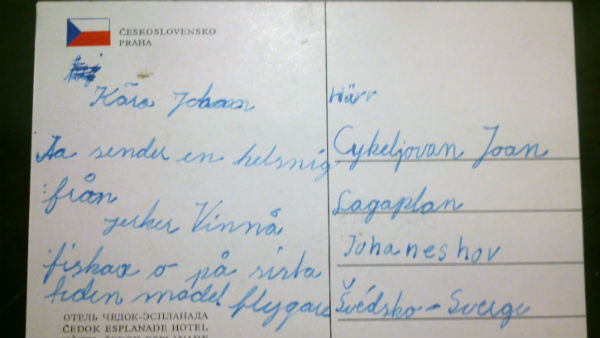 ČESKOSLOVENSKO
PRAHA
Kära Johan
Ja sender en helsnig
från
jerker Vinnå
fiskar o på sista
tiden model flygare
ОТЕЛЬ ЧЕДОК-ЭСПЛАНАДА
ČEDOK ESPLANADE HOTEL
Härr
Cykeljovan Joan
Lagaplan
Johaneshov
Švédsko - Sverge